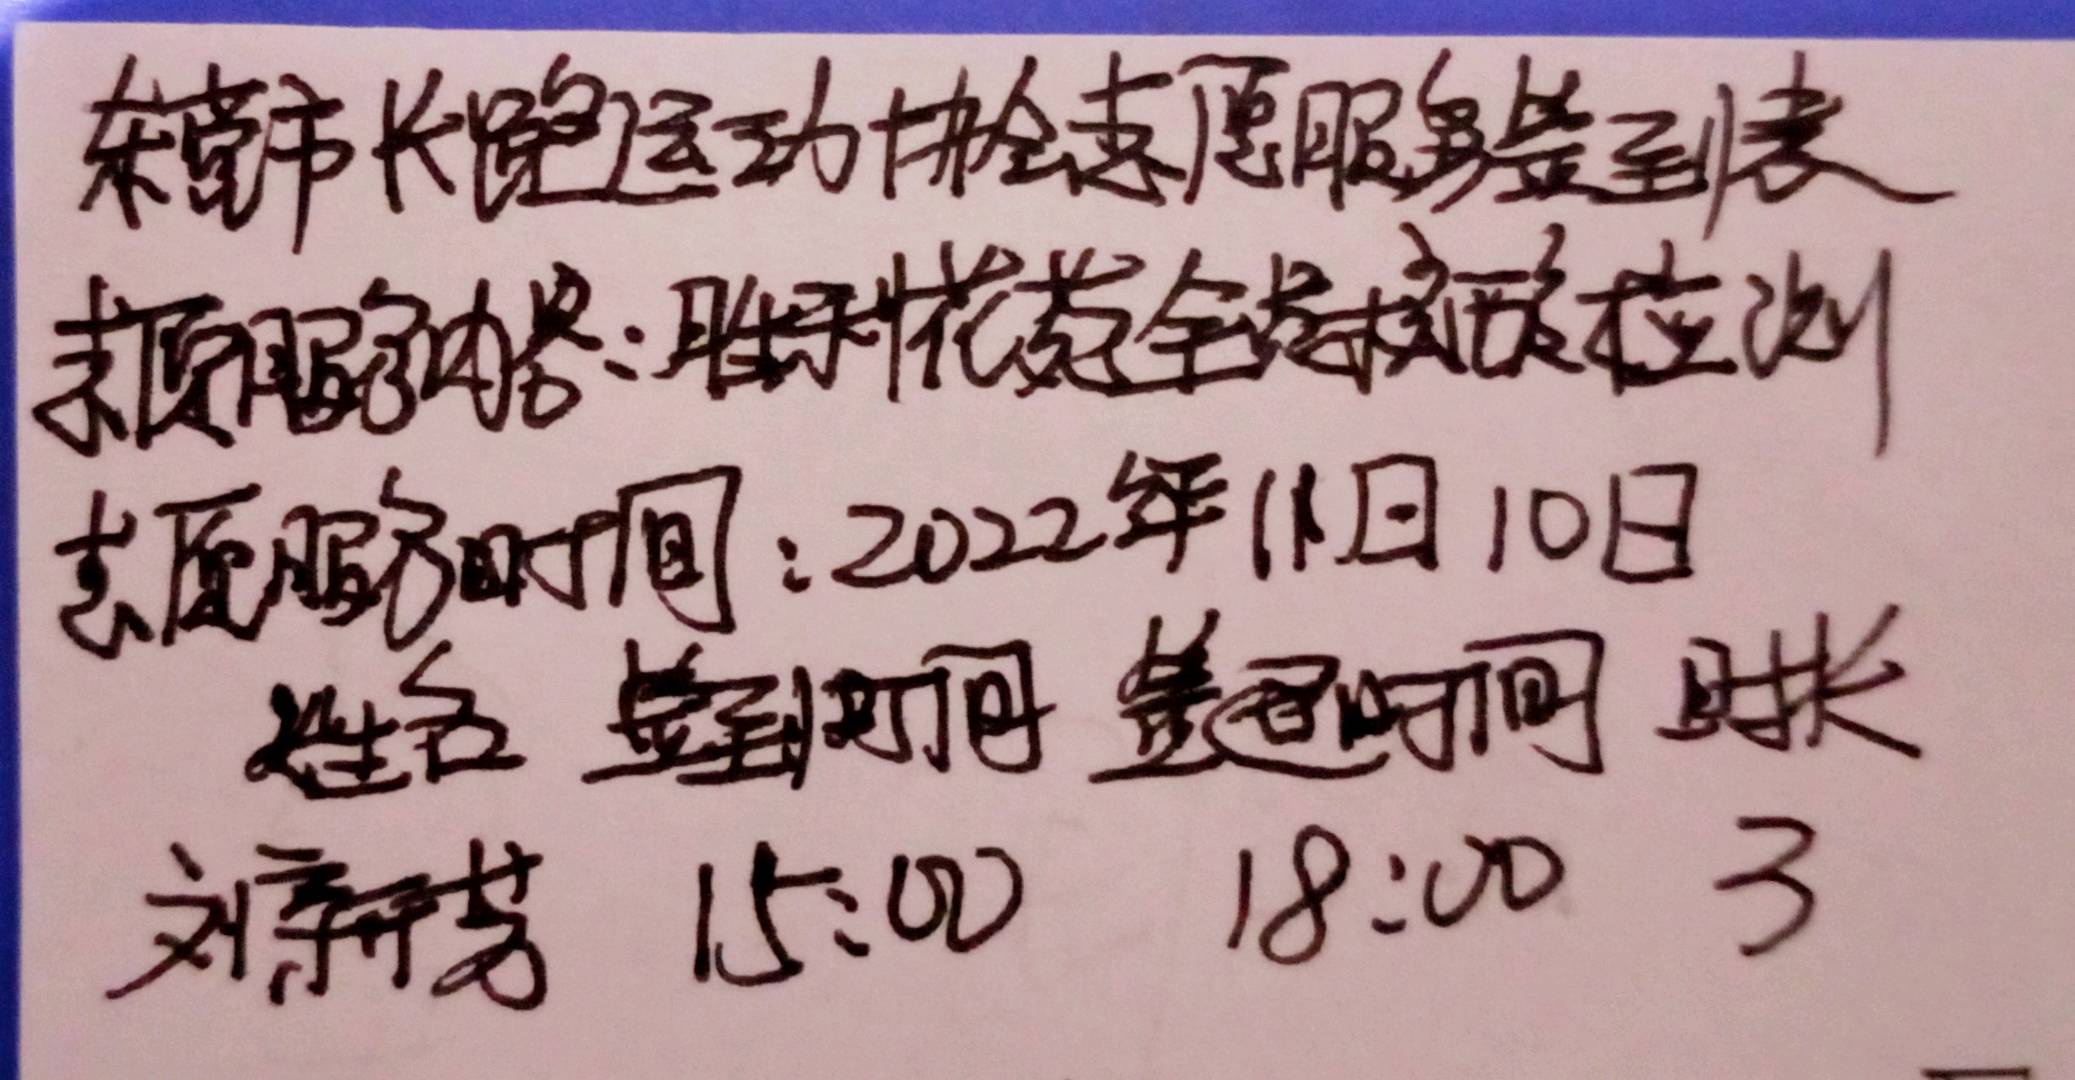 东莞市长跑运动协会志愿服务签到表
志愿服务内容：胜利花苑全员核酸检测
志愿服务时间：2022年11日10日
姓名 签到时间 签退时间 时长
刘新芳 15:00 18:00 3